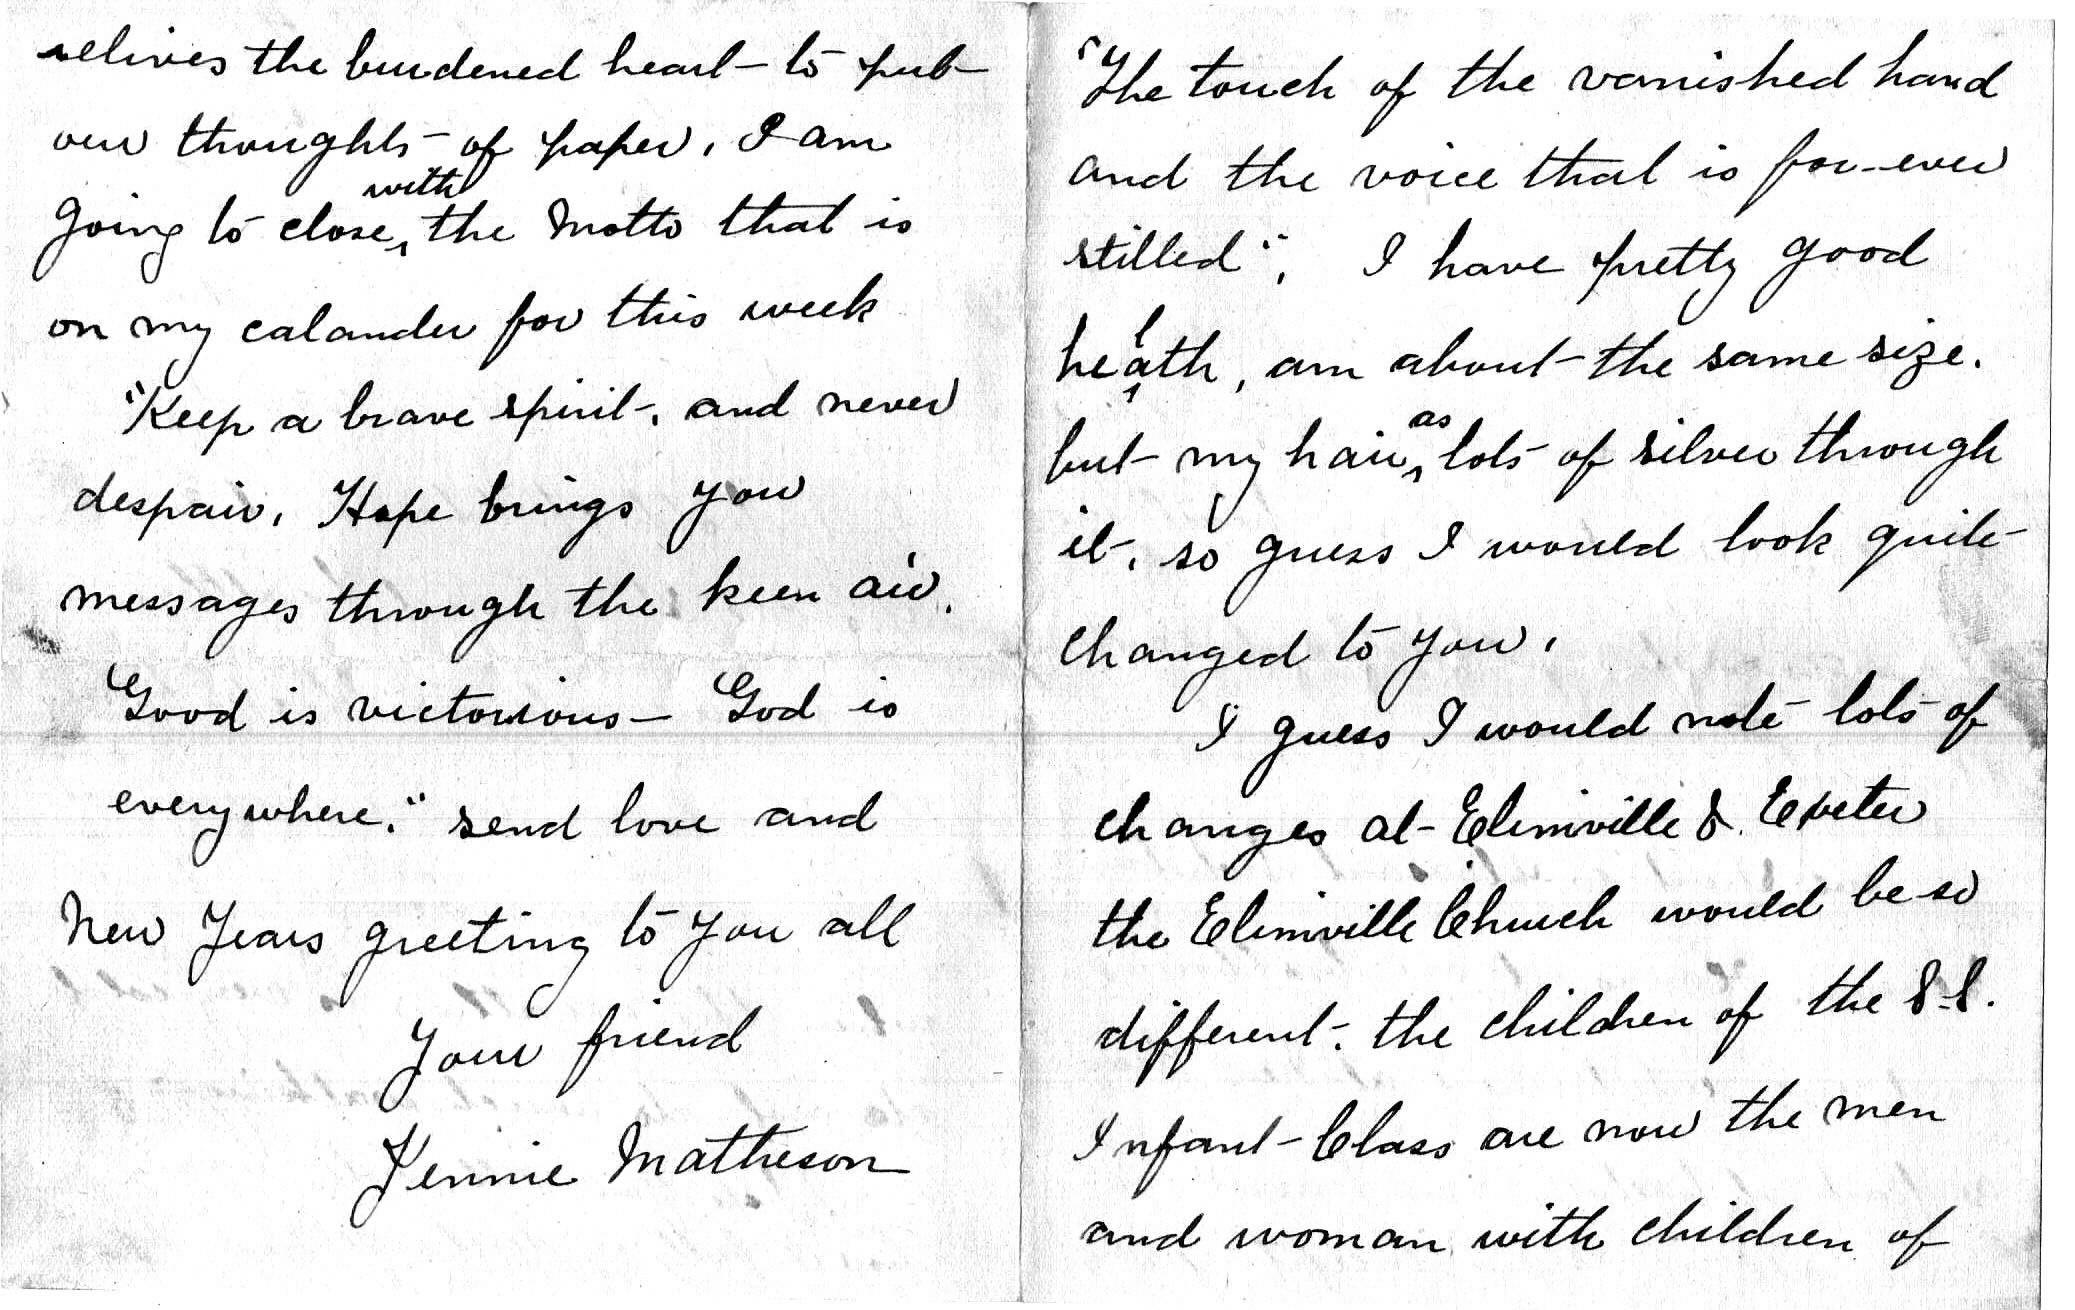 relives the burdened heart to put
our thoughts of paper. I am
with
going to close, the Motto that is
on my calander for this week
"Keep a brave spirit, and never
despair. Hope brings you
messages through the keen air.
Good is victorious - God is
everywhere." send love and
New Years greeting to you all
Your friend
Jennie Matheson
"The touch of the vanished hand
and the voice that is for-ever
stilled". I have pretty good
l
heath, am about the same size.
as
but my hair lots of silver through
it, so guess I would look quite
changed to you.
I guess I would note lots of
changes at Elimville & Exeter
the Elimville Church would be so
different. the children of the S.S.
Infant Class are now the men
and woman with children of